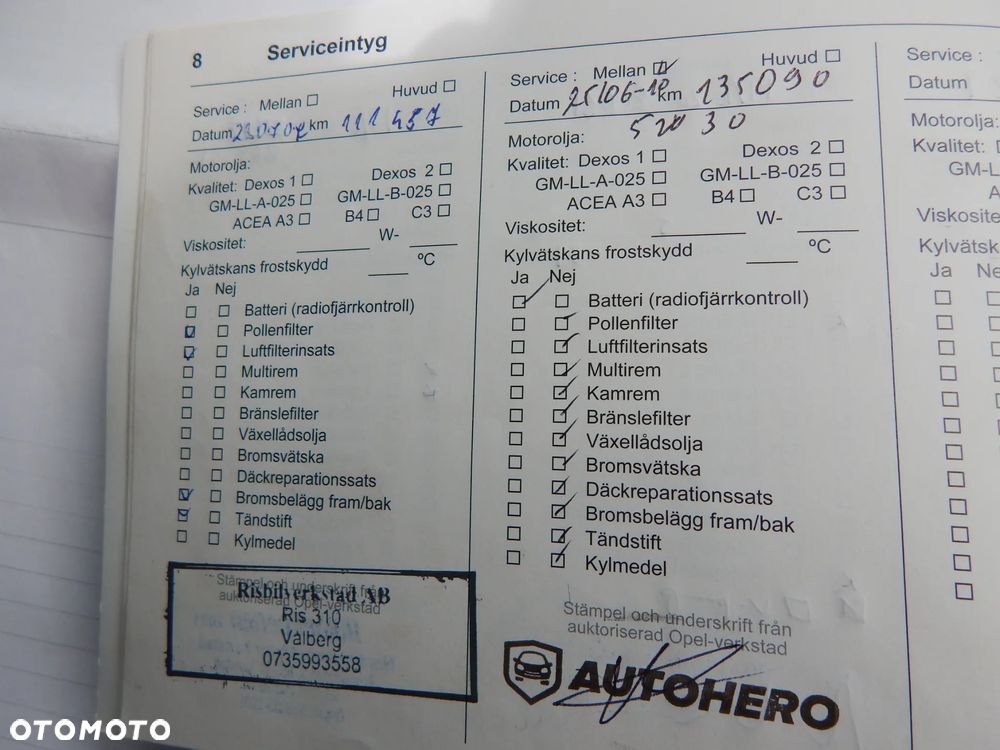 8 Serviceintyg
Service : Mellan Huvud
Datum km 111 457
Motorolja:
Kvalitet: Dexos 1 Dexos 2
GM-LL-A-025 GM-LL-B-025
ACEA A3 B4 C3
Viskositet: W-
Kylvätskans frostskydd ºC
Ja Nej
Batteri (radiofjärrkontroll)
Pollenfilter
Luftfilterinsats
Multirem
Kamrem
Bränslefilter
Växellådsolja
Bromsvätska
Däckreparationssats
Bromsbelägg fram/bak
Tändstift
Kylmedel
Stämpel och underskrift från
auktoriserad Opel-verkstad
Risbilverkstad AB
Ris 310
Vålberg
0735993558
Service : Mellan Huvud
Datum km 135090
5 30
Motorolja:
Kvalitet: Dexos 1 Dexos 2
GM-LL-A-025 GM-LL-B-025
ACEA A3 B4 C3
Viskositet: W-
Kylvätskans frostskydd ºC
Ja Nej
Batteri (radiofjärrkontroll)
Pollenfilter
Luftfilterinsats
Multirem
Kamrem
Bränslefilter
Växellådsolja
Bromsvätska
Däckreparationssats
Bromsbelägg fram/bak
Tändstift
Kylmedel
Stämpel och underskrift från
auktoriserad Opel-verkstad
AUTOHERO
Service :
Datum
Motorolja:
Kvalitet: D
GM-L
AC
Viskosite
Kylvätsk
Ja Ne
OTOMOTO